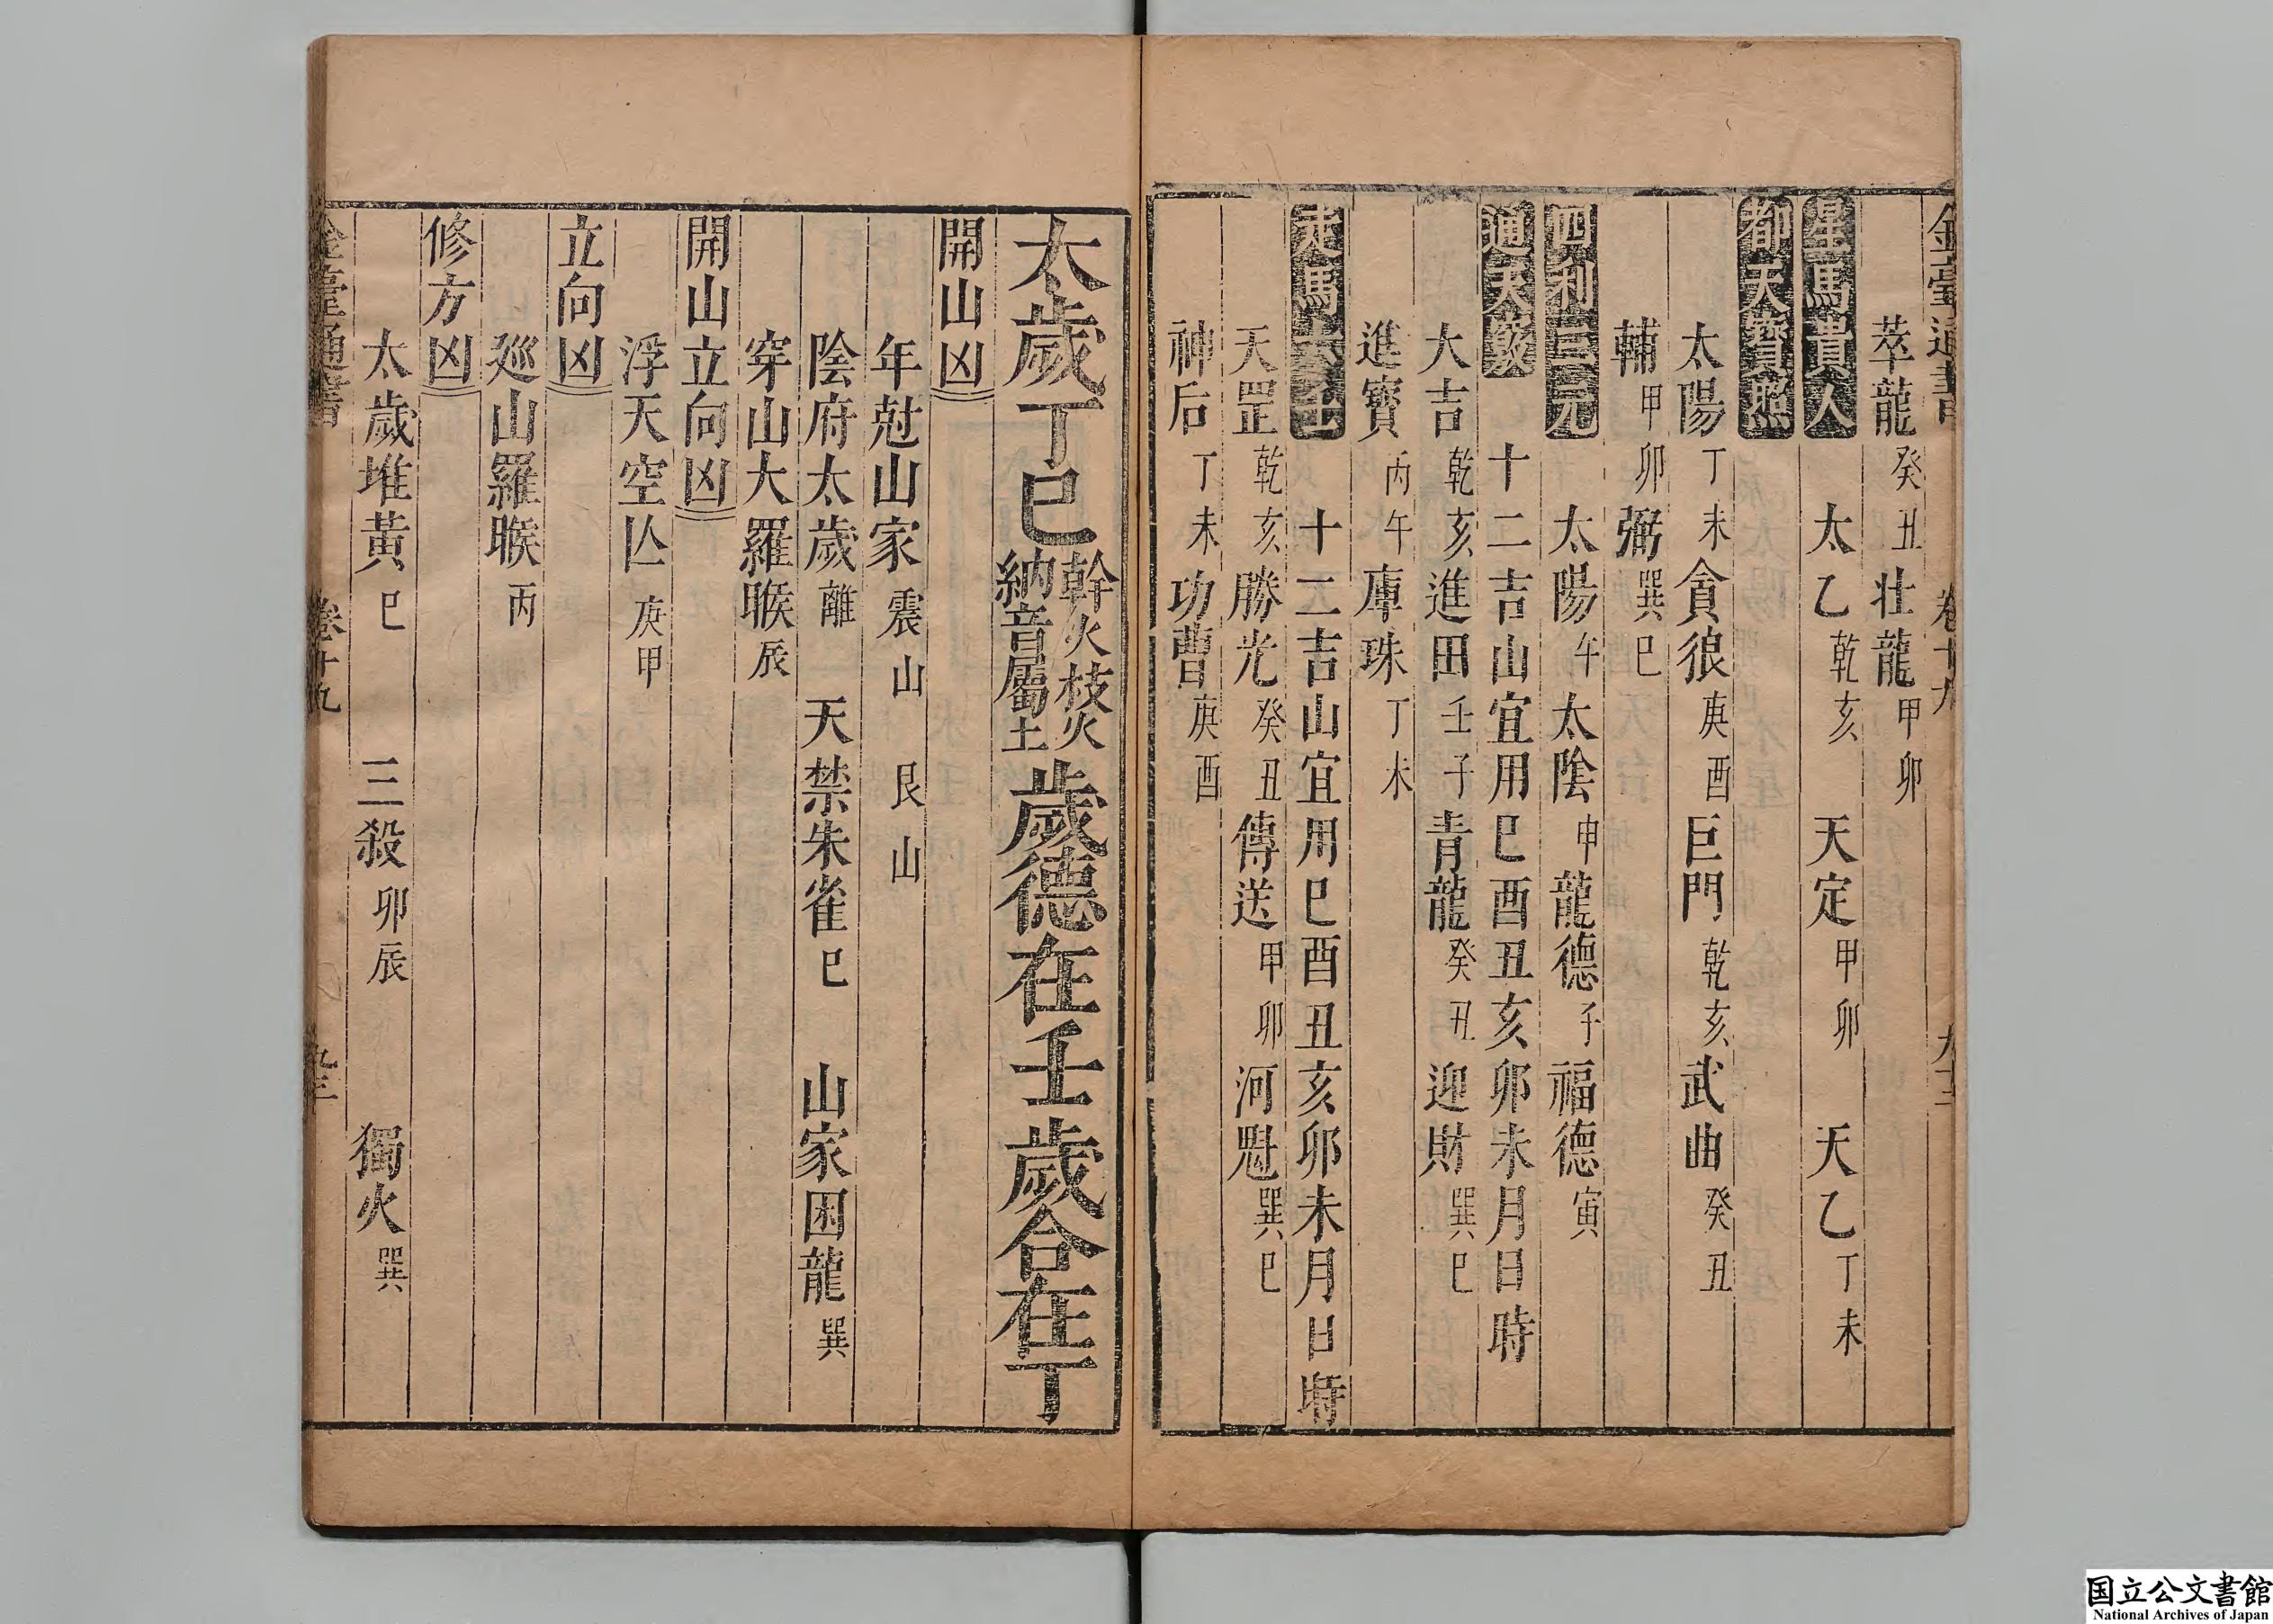 金臺通書 卷十九 九十二
萃龍癸丑 壯龍甲卯
星馬貴人 太乙乾亥 天定甲卯 天乙丁未
都天寶照
太陽丁未 貪狼庚酉 巨門乾亥 武曲癸丑
輔甲卯 弼巽巳
四利三元 太陽午 太陰申 龍德子 福德寅
通天竅 十二吉山宜用巳酉丑亥卯未月日時
大吉乾亥 進田壬子 青龍癸丑 迎財巽巳
進寶丙午 庫珠丁未
走馬六壬 十二吉山宜用巳酉丑亥卯未月日時
天罡乾亥 勝光癸丑 傳送甲卯 河魁巽巳
神后丁未 功曹庚酉
太歲丁巳 幹火枝火 納音屬土 歲德在壬 歲合在丁
開山凶
年尅山家 震山 艮山
陰府太歲離 天禁朱雀巳 山家困龍巽
穿山大羅睺辰
開山立向凶
浮天空亾庚甲
立向凶
廵山羅睺丙
修方凶
太歲堆黃巳 三殺卯辰 獨火巽
金臺通書 卷十九 九三
国立公文書館
National Archives of Japan